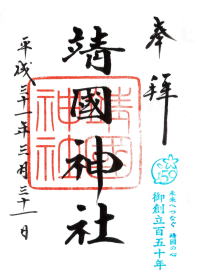 奉拝
未来へつなぐ 靖国の心
御創立百五十年
靖國神社
靖國神社
平成三十一年三月三十一日